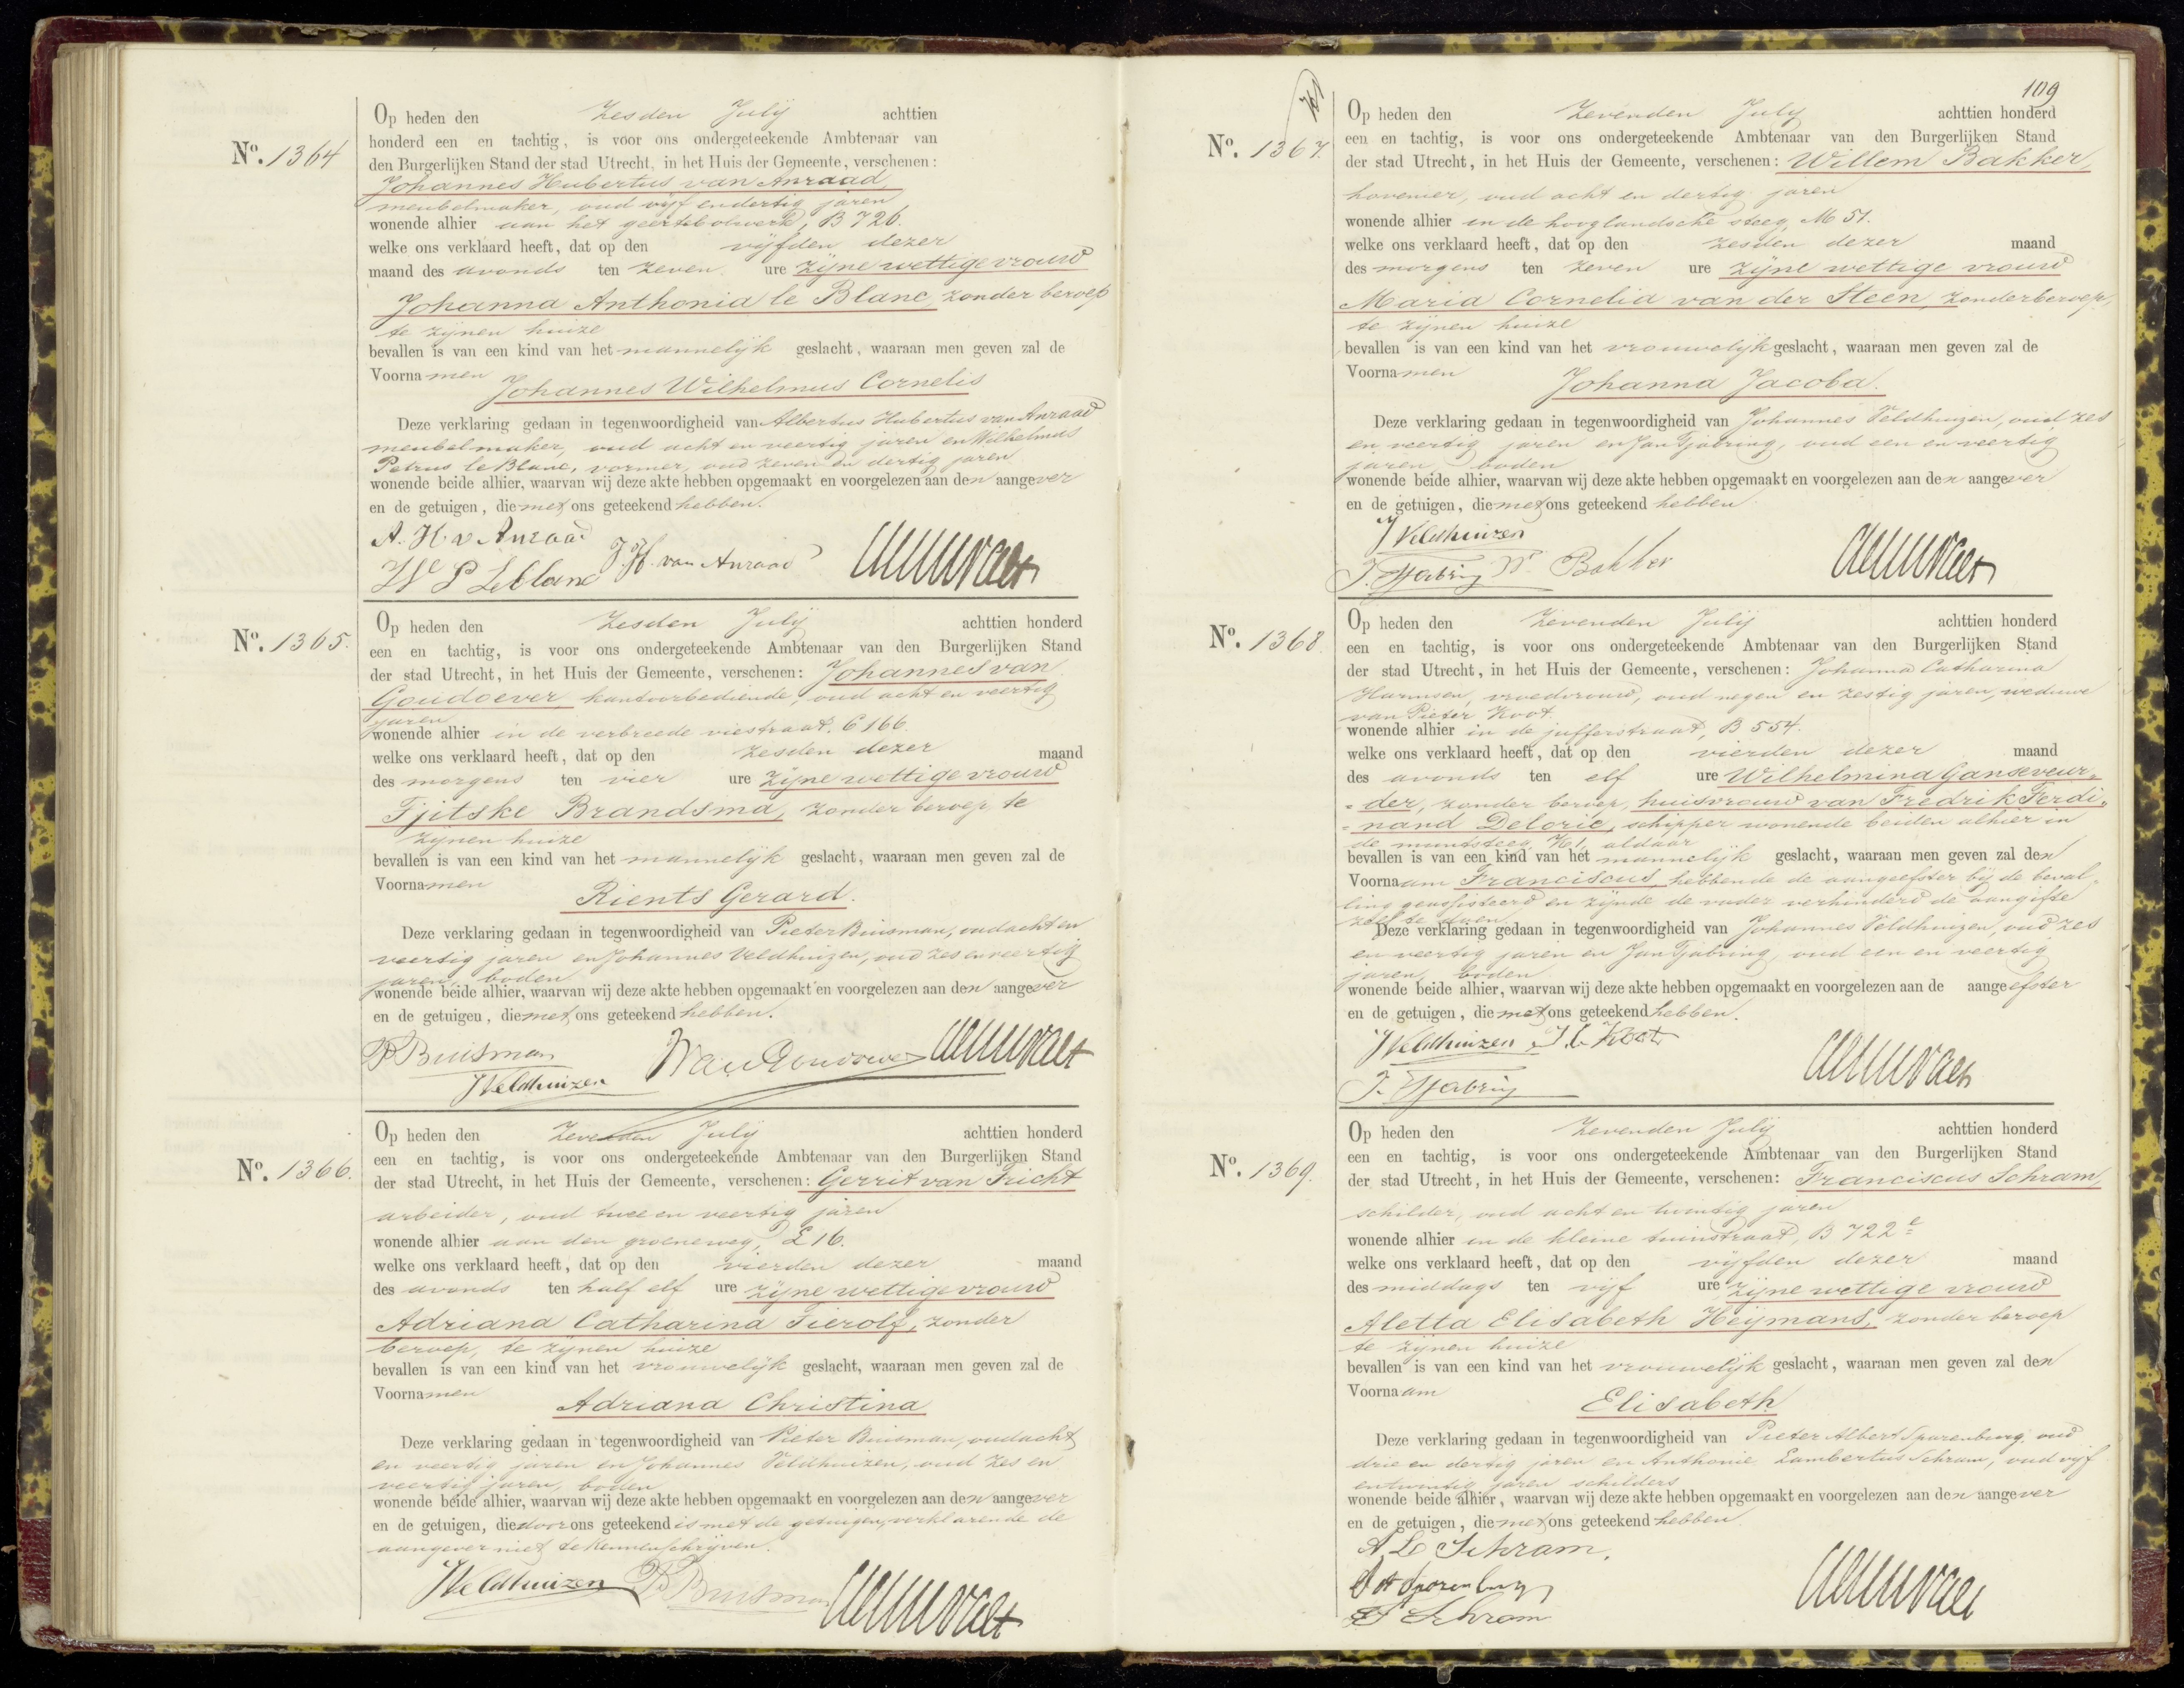 Nº. 1364
Op heden den Zesden July achttien
honderd een en tachtig, is voor ons ondergeteekende Ambtenaar van
den Burgerlijken Stand der stad Utrecht, in het Huis der Gemeente, verschenen:
Johannes Hubertus van Anraad
meubelmaker, oud vyf en dertig jaren
wonende alhier aan het geertebolwerk, B 726.
welke ons verklaard heeft, dat op den vyfden dezer
maand des avonds ten zeven ure zyne wettige vrouw
Johanna Anthonia le Blanc, zonder beroep
te zynen huize
bevallen is van een kind van het mannelyk geslacht, waaraan men geven zal de
Voornamen Johannes Wilhelmus Cornelis
Deze verklaring gedaan in tegenwoordigheid van Albertus Hubertus van Anraad
meubelmaker, oud acht en veertig jaren en Wilhelmus
Petrus le Blanc, vormer, oud zeven en dertig jaren
wonende beide alhier, waarvan wij deze akte hebben opgemaakt en voorgelezen aan den aangever
en de getuigen, die met ons geteekend hebben.
A. H. v Anraad
J. H. van Anraad
W P Leblanc
Nº. 1365.
Op heden den Zesden July achttien honderd
een en tachtig, is voor ons ondergeteekende Ambtenaar van den Burgerlijken Stand
der stad Utrecht, in het Huis der Gemeente, verschenen: Johannes van
Goudoever kantoorbediende, oud acht en veertig
jaren
wonende alhier in de verbreede viestraat, C 166.
welke ons verklaard heeft, dat op den zesden dezer maand
des morgens ten vier ure zyne wettige vrouw
Tjitske Brandsma, zonder beroep te
zynen huize
bevallen is van een kind van het mannelyk geslacht, waaraan men geven zal de
Voornamen Rients Gerard.
Deze verklaring gedaan in tegenwoordigheid van Pieter Buisman, oud acht en
veertig jaren en Johannes Veldhuizen, oud zes en veertig
jaren, boden
wonende beide alhier, waarvan wij deze akte hebben opgemaakt en voorgelezen aan den aangever
en de getuigen, die met ons geteekend hebben.
P Buisman
JVeldhuizen
Nº. 1366.
Op heden den Zevenden July achttien honderd
een en tachtig, is voor ons ondergeteekende Ambtenaar van den Burgerlijken Stand
der stad Utrecht, in het Huis der Gemeente, verschenen: Gerrit van Tricht
arbeider, oud twee en veertig jaren
wonende alhier aan den groeneweg, E 16.
welke ons verklaard heeft, dat op den vierden dezer maand
des avonds ten half elf ure zyne wettige vrouw
Adriana Catharina Tierolf, zonder
beroep, te zynen huize
bevallen is van een kind van het vrouwelyk geslacht, waaraan men geven zal de
Voornamen Adriana Christina
Deze verklaring gedaan in tegenwoordigheid van Pieter Buisman, oud acht
en veertig jaren en Johannes Veldhuizen, oud zes en
veertig jaren, boden
wonende beide alhier, waarvan wij deze akte hebben opgemaakt en voorgelezen aan den aangever
en de getuigen, die door ons geteekend is met de getuigen, verklarende de
aangever niet te kennen schryven.
JVeldhuizen P Buisman
109
Nº. 1367.
Op heden den Zevenden July achttien honderd
een en tachtig, is voor ons ondergeteekende Ambtenaar van den Burgerlijken Stand
der stad Utrecht, in het Huis der Gemeente, verschenen: Willem Bakker,
hovenier, oud acht en dertig jaren
wonende alhier in de hooglandsche steeg, M 51.
welke ons verklaard heeft, dat op den zesden dezer maand
des morgens ten zeven ure zyne wettige vrouw
Maria Cornelia van der Steen, zonder beroep,
te zynen huize
bevallen is van een kind van het vrouwelyk geslacht, waaraan men geven zal de
Voornamen Johanna Jacoba.
Deze verklaring gedaan in tegenwoordigheid van Johannes Veldhuizen, oud zes
en veertig jaren en Jan Tjabring, oud een en veertig
jaren, boden
wonende beide alhier, waarvan wij deze akte hebben opgemaakt en voorgelezen aan den aangever
en de getuigen, die met ons geteekend hebben
JVeldhuizen
J. Tjabring W Bakker
Nº. 1368.
Op heden den Zevenden July achttien honderd
een en tachtig, is voor ons ondergeteekende Ambtenaar van den Burgerlijken Stand
der stad Utrecht, in het Huis der Gemeente, verschenen: Johanna Catharina
Harmsen, vroedvrouw, oud negen en zestig jaren, weduwe
van Pieter Koot
wonende alhier in de jufferstraat, B 554.
welke ons verklaard heeft, dat op den vierden dezer maand
des avonds ten elf ure Wilhelmina Ganseveur=
=der, zonder beroep, huisvrouw van Fredrik Ferdi=
=nand Delorie, schipper wonende beiden alhier in
de muntsteeg, H 1, aldaar
bevallen is van een kind van het mannelyk geslacht, waaraan men geven zal den
Voornaam Franciscus, hebbende de aangeefster by de beval=
ling geassisteerd en zynde de vader verhinderd de aangifte
zelf te doen
Deze verklaring gedaan in tegenwoordigheid van Johannes Veldhuizen, oud zes
en veertig jaren en Jan Tjabring, oud een en veertig
jaren, boden
wonende beide alhier, waarvan wij deze akte hebben opgemaakt en voorgelezen aan de aangeefster
en de getuigen, die met ons geteekend hebben.
JVeldhuizen J C Koot
J. Tjabring
Nº. 1369.
Op heden den Zevenden July achttien honderd
een en tachtig, is voor ons ondergeteekende Ambtenaar van den Burgerlijken Stand
der stad Utrecht, in het Huis der Gemeente, verschenen: Franciscus Schram,
schilder, oud acht en twintig jaren
wonende alhier in de kleine tuinstraat, B 722
welke ons verklaard heeft, dat op den vyfden dezer maand
des middags ten vyf ure zyne wettige vrouw
Aletta Elisabeth Heymans, zonder beroep
te zynen huize
bevallen is van een kind van het vrouwelyk geslacht, waaraan men geven zal den
Voornaam Elisabeth
Deze verklaring gedaan in tegenwoordigheid van Pieter Albert Sparenburg, oud
drie en dertig jaren en Anthonie Lambertus Schram, oud vyf
en twintig jaren schilders
wonende beide alhier, waarvan wij deze akte hebben opgemaakt en voorgelezen aan den aangever
en de getuigen, die met ons geteekend hebben
A L Schram.
P A Sparenburg
F Schram